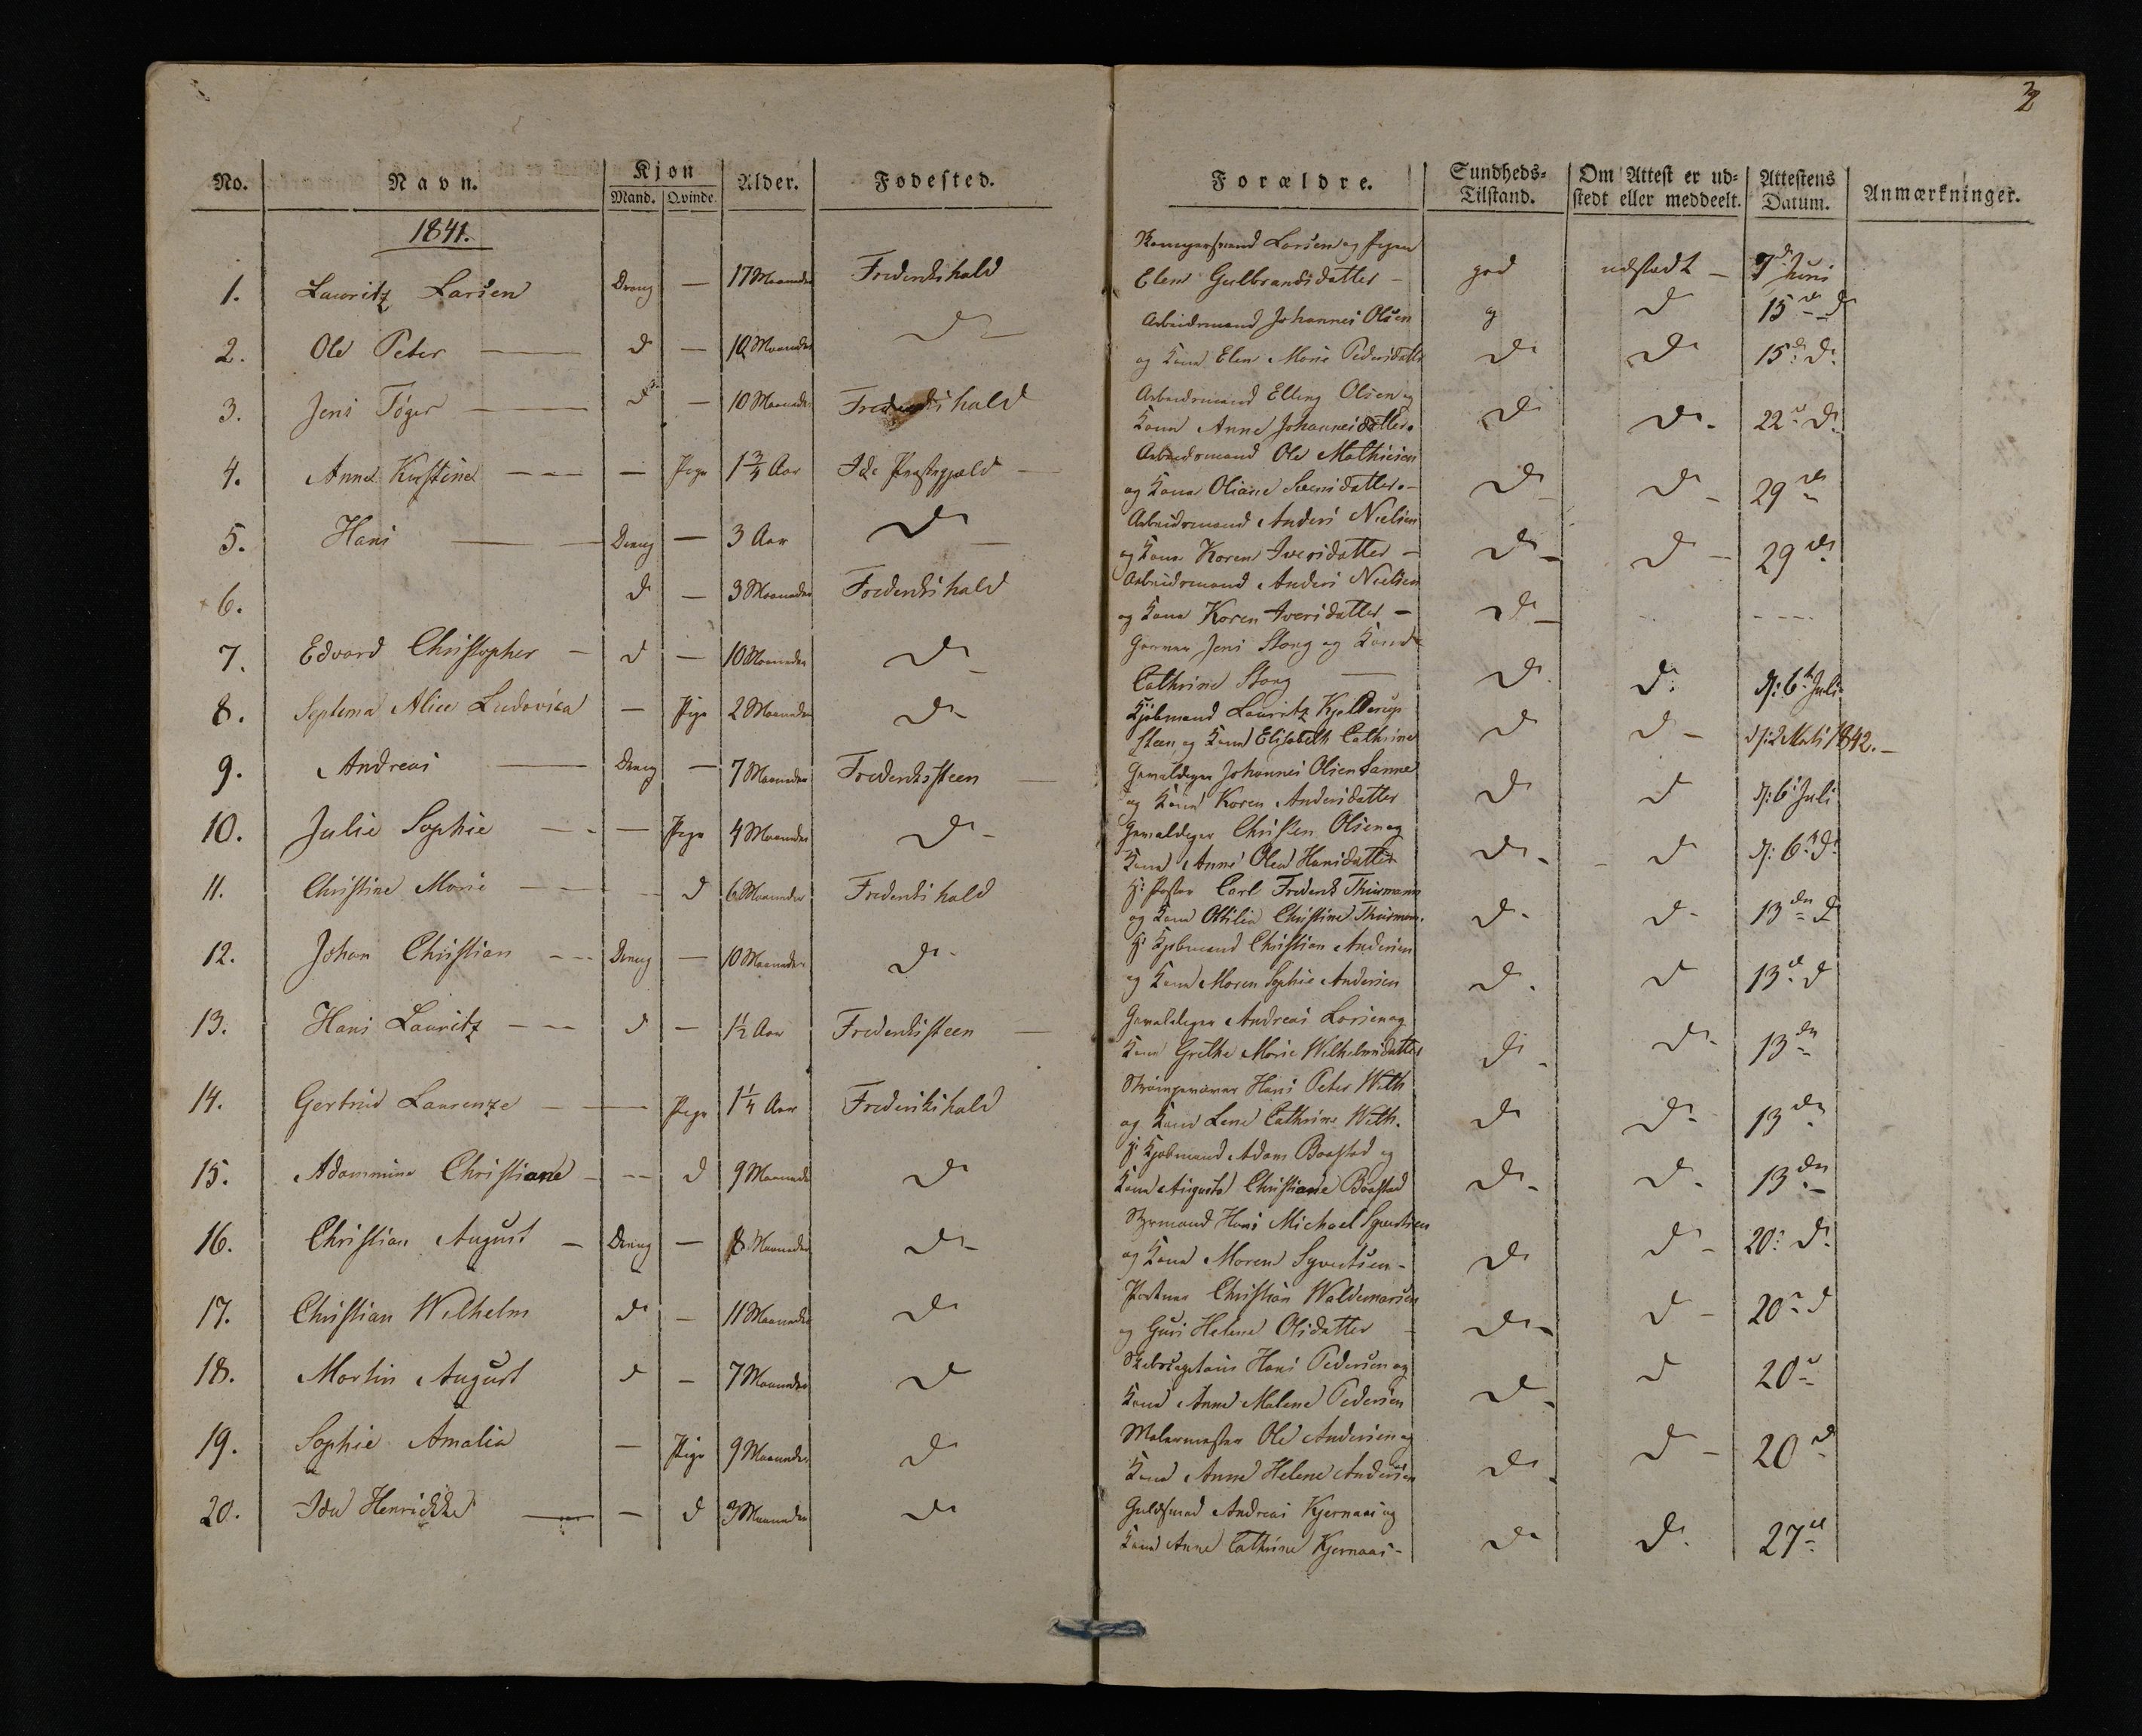 2
No. Navn. Kjon Alder. Fodested. Forældre. Sundheds- Om Attest er ud- Attestens Anmærkninger.
Mand. Qvinde. Tilstand. stedt eller meddeelt. Datum.
1841.
1. Lauritz Larsen Dreng — 17 Maaneder Frederikshald Larsen og Pigen
Elen Gulbrandsdatter — god udstædt — Juni
2. Ole Peter — do — 10 Maaneder do Arbeidsmand Johannes Olsen g do 15 do
og Kone Elen Marie Pedersdatter do do 15 do
3. Jens Töger — do — 10 Maaneder Frederikshald Arbeidsmand Elling Olsen og
Kone Anne Johannesdatter. do do. 22 do
4. Anne Kirstine — — Pige 1 3/4 Aar Ide Præstegjæld — Arbeidsmand Ole Mathisen
og Kone Oliane Svensdatter. — do do 29 do
5. Hans — Dreng — 3 Aar do Arbeidsmand Anders Nielsen
og Kone Karen Iversdatter — do do 29 do
6. do — 3 Maaneder Frederikshald Arbeidsmand Anders Nielsen
og Kone Karen Iversdatter — do
7. Edvard Christopher — do — 10 Maaneder do Garver Jens Stang og Kone
Cathrine Stang — do do 6 Juli
8. Septema Alice Ludovica — Pige 2 Maaneder do Kjøbmand Lauritz Kjelderup
Steen og Kone Elisabeth Cathrine do do 1842. —
9. Andreas — Dreng — 7 Maaneder Frederiksteen — Gevaldiger Johannes Olsen Sanne
og Kone Karen Andersdatter do do 6 Juli
10. Julie Sophie — — Pige 4 Maaneder do Gevaldiger Christen Olsen og
Kone Anne Olea Hansdatter do do 6 do
11. Christine Marie — do 6 Maaneder Frederikshald Hr Pastor Carl Frederik Thurmann
og Kone Ottilia Christine Thurmann. do do 13 do
12. Johan Christian — Dreng — 10 Maaneder do Hr Kjøbmand Christian Andersen
og Kone Maren Sophie Andersen do do 13 do
13. Hans Lauritz — do — 1 1/2 Aar Frederiksteen — Gevaldiger Andreas Larsen og
Kone Grethe Marie Wilhelmsdatter do do 13 do
14. Gertrud Laurenze — Pige 1 1/4 Aar Frederikshald Hans Peter With
og Kone Lene Cathrine With. do do 13 do
15. Adammine Christiane — do 9 Maaneder do Hr Kjøbmand Adam Baastad og
Kone Augusta Christiane Baastad do do 13 do
16. Christian August — Dreng — 8 Maaneder do Styrmand Hans Michael Syvertsen
og Kone Maren Syvertsen — do do 20 do
17. Christian Wilhelm do — 11 Maaneder do Christian Waldemarsen
og Guri Helene Olsdatter — do do 20 do
18. Martin August do — 7 Maaneder do Skibscapitain Hans Pedersen og
Kone Anne Malene Pedersen do do 20 do
19. Sophie Amalia — Pige 9 Maaneder do Malermester Ole Andersen og
Kone Anne Helene Andersen do do 20 do
20. Ida Henrikke — — do 3 Maaneder do Guldsmed Andreas Kjernaas og
Kone Anne Cathrine Kjernaas — do do 27 do